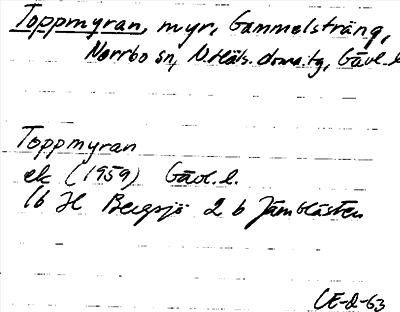 Toppmyran, myr, Gammelsträng,
Norrbo sn, N. Häls. doms.tg, Gävl.l.
Toppmyran
ek (1959) Gävl.l.
16 H Bergsjö 2 b Jämtlästen
CE-2-63